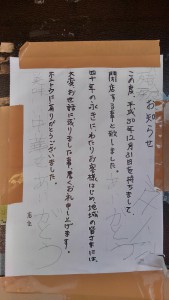 お知らせ
この度、平成30年12月31日を持ちまして
閉店する事と致しました。
四十年の永きにわたりお客様はじめ地域の皆さまには、
大変お世話に成りました事厚くお礼申し上げます。
ホントウにありがとうございました。
店主